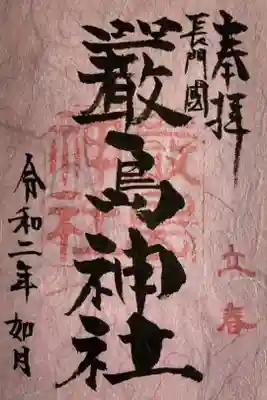 奉拝
長門國
厳島神社
立春
令和二年 如月